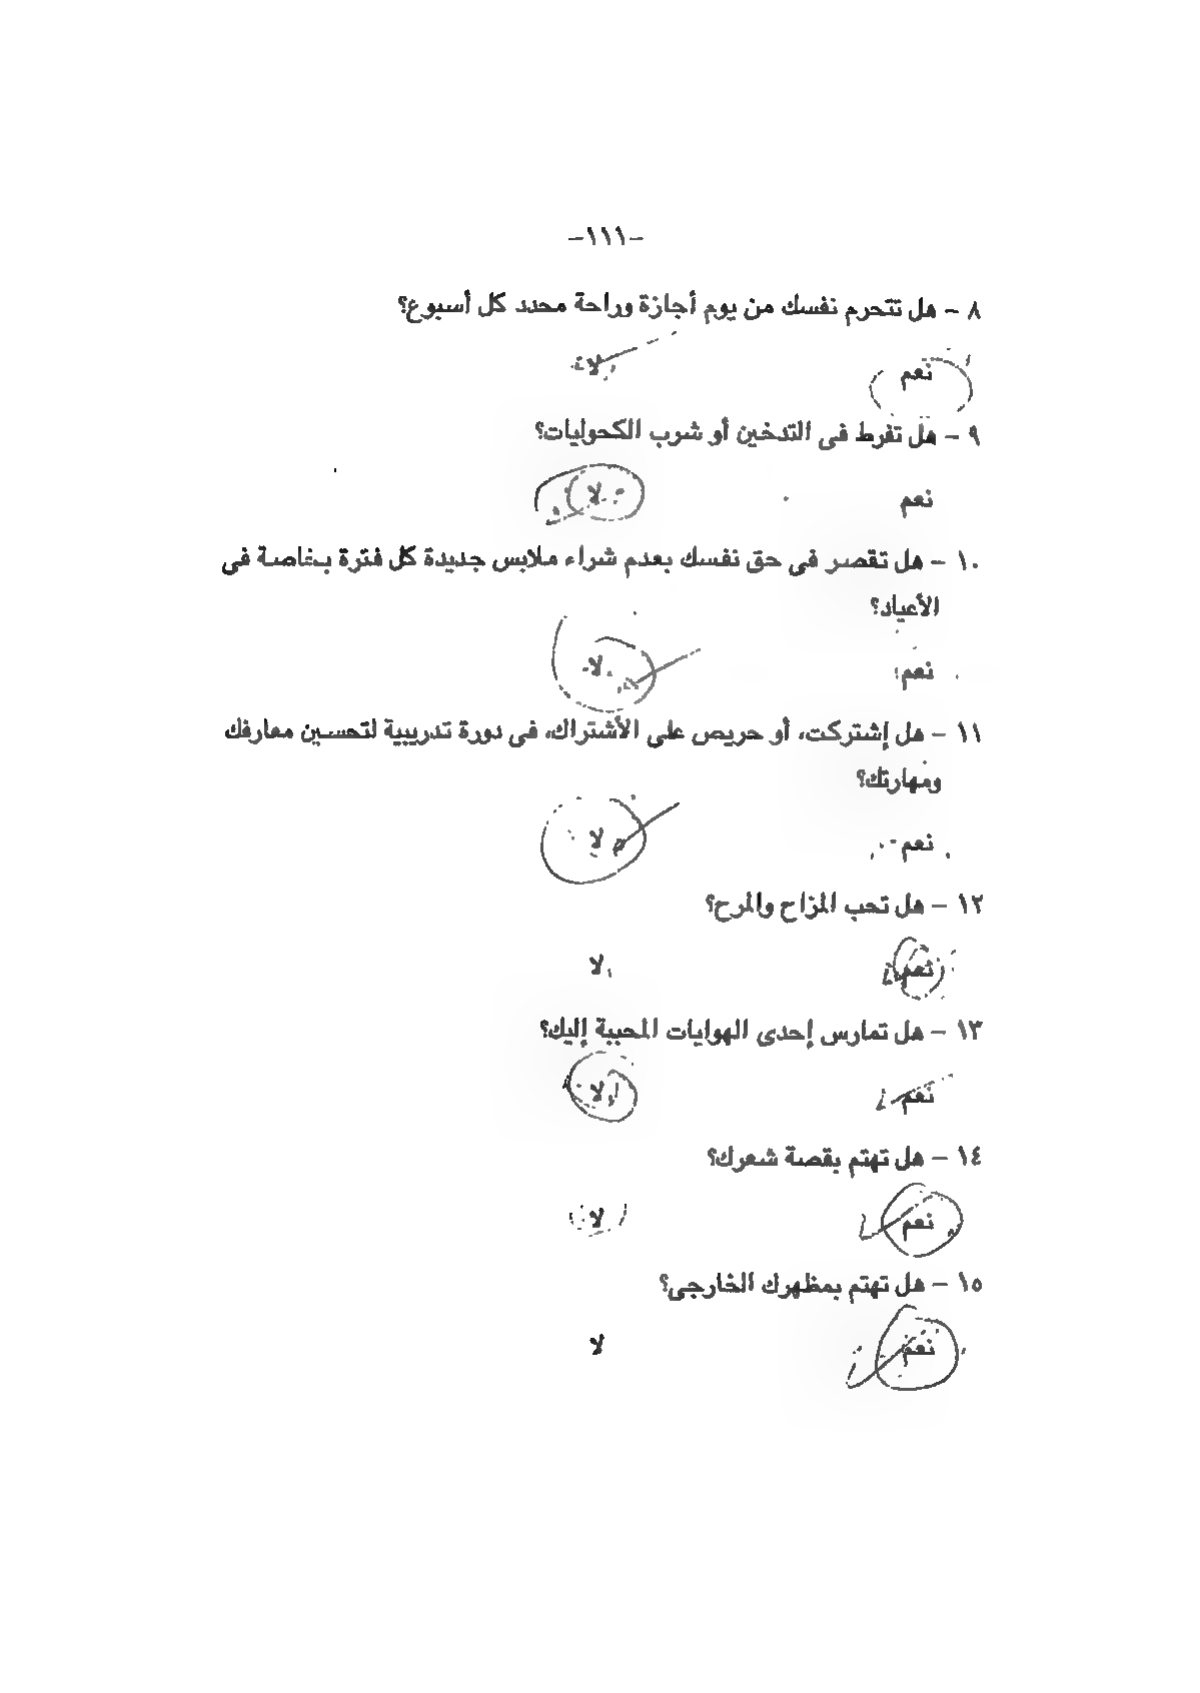 -١١١-
٨ - هل تتحرم نفسك من يوم أجازة وراحة محدد كل أسبوع؟
نعم لا
٩ - هل تفرط فى التدخين أو شرب الكحوليات؟
نعم لا
١٠ - هل تقصر فى حق نفسك بعدم شراء ملابس جديدة كل فترة بخاصة فى
الأعياد؟
نعم لا
١١ - هل إشتركت، أو حريص على الأشتراك، فى دورة تدريبية لتحسين معارفك
ومهارتك؟
نعم لا
١٢ - هل تحب المزاح والمرح؟
نعم لا
١٣ - هل تمارس إحدى الهوايات المحببة إليك؟
نعم لا
١٤ - هل تهتم بقصة شعرك؟
نعم لا
١٥ - هل تهتم بمظهرك الخارجى؟
نعم لا